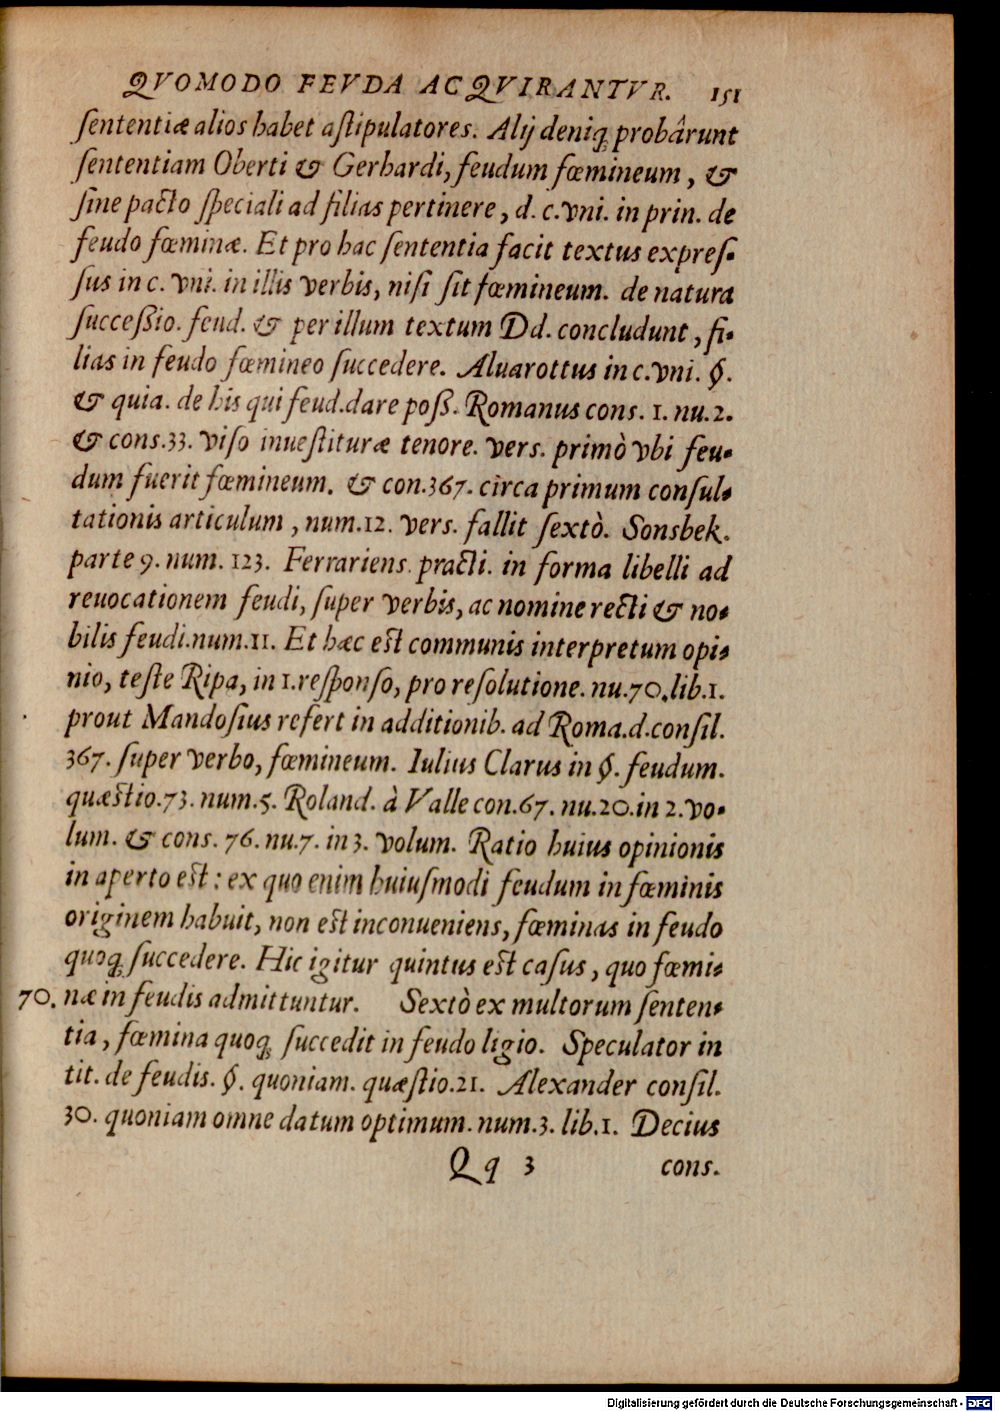 QVOMODO FEVDA ACQVIRANTVR. 151
ſententiæ alios habet aſtipulatores. Alij deniq; probârunt
ſententiam Oberti & Gerhardi, feudum fœmineum, &
ſine pacto ſpeciali ad filias pertinere, d. c. vni. in prin. de
feudo fœminæ. Et pro hac ſententia facit textus expreſ-
ſus in c. vni. in illis verbis, niſi ſit fœmineum. de natura
ſucceßio. feud. & per illum textum Dd. concludunt, fi-
lias in feudo fœmineo ſuccedere. Aluarottus in c. vni. §.
& quia. de his qui feud. dare poß. Romanus cons. 1. nu. 2.
& cons. 33. viſo inueſtituræ tenore. vers. primò vbi feu-
dum fuerit fœmineum. & con. 367. circa primum conſul-
tationis articulum, num. 12. vers. fallit ſextò. Sonsbek.
parte 9. num. 123. Ferrariens. practi. in forma libelli ad
reuocationem feudi, ſuper verbis, ac nomine recti & no-
bilis feudi. num. 11. Et hæc eſt communis interpretum opi-
nio, teſte Ripa, in 1. reſponſo, pro reſolutione. nu. 70. lib. 1.
prout Mandoſius refert in additionib. ad Roma. d. conſil.
367. ſuper verbo, fœmineum. Iulius Clarus in §. feudum.
quæſtio. 73. num. 5. Roland. à Valle con. 67. nu. 20. in 2. vo-
lum. & cons. 76. nu. 7. in 3. volum. Ratio huius opinionis
in aperto eſt: ex quo enim huiuſmodi feudum in fœminis
originem habuit, non eſt inconueniens, fœminas in feudo
quoq; ſuccedere. Hic igitur quintus eſt caſus, quo fœmi-
70. næ in feudis admittuntur. Sextò ex multorum ſenten-
tia, fœmina quoq; ſuccedit in feudo ligio. Speculator in
tit. de feudis. §. quoniam. quæſtio. 21. Alexander conſil.
30. quoniam omne datum optimum. num. 3. lib. 1. Decius
Qq 3 cons.
Digitalisierung gefördert durch die Deutsche Forschungsgemeinschaft - DFG